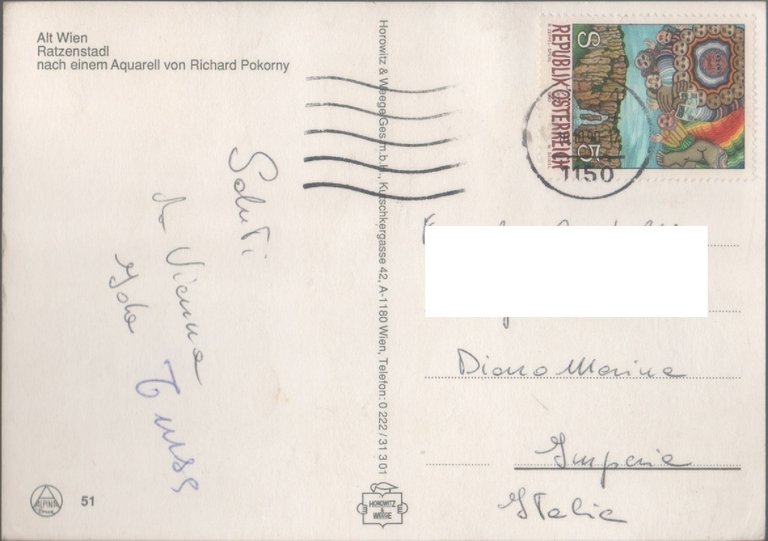 Alt Wien
Ratzenstadl
nach einem Aquarell von Richard Pokorny
Saluti
da Vienna
Horowitz & Weege Ges.m.b.H., Kutschkergasse 42, A-1180 Wien, Telefon: 0 222 / 31 3 01
REPUBLIK ÖSTERREICH
S 5
1150
Diano Marina
Imperia
Italia
ALPINA
51
HOROWITZ
&
WEEGE